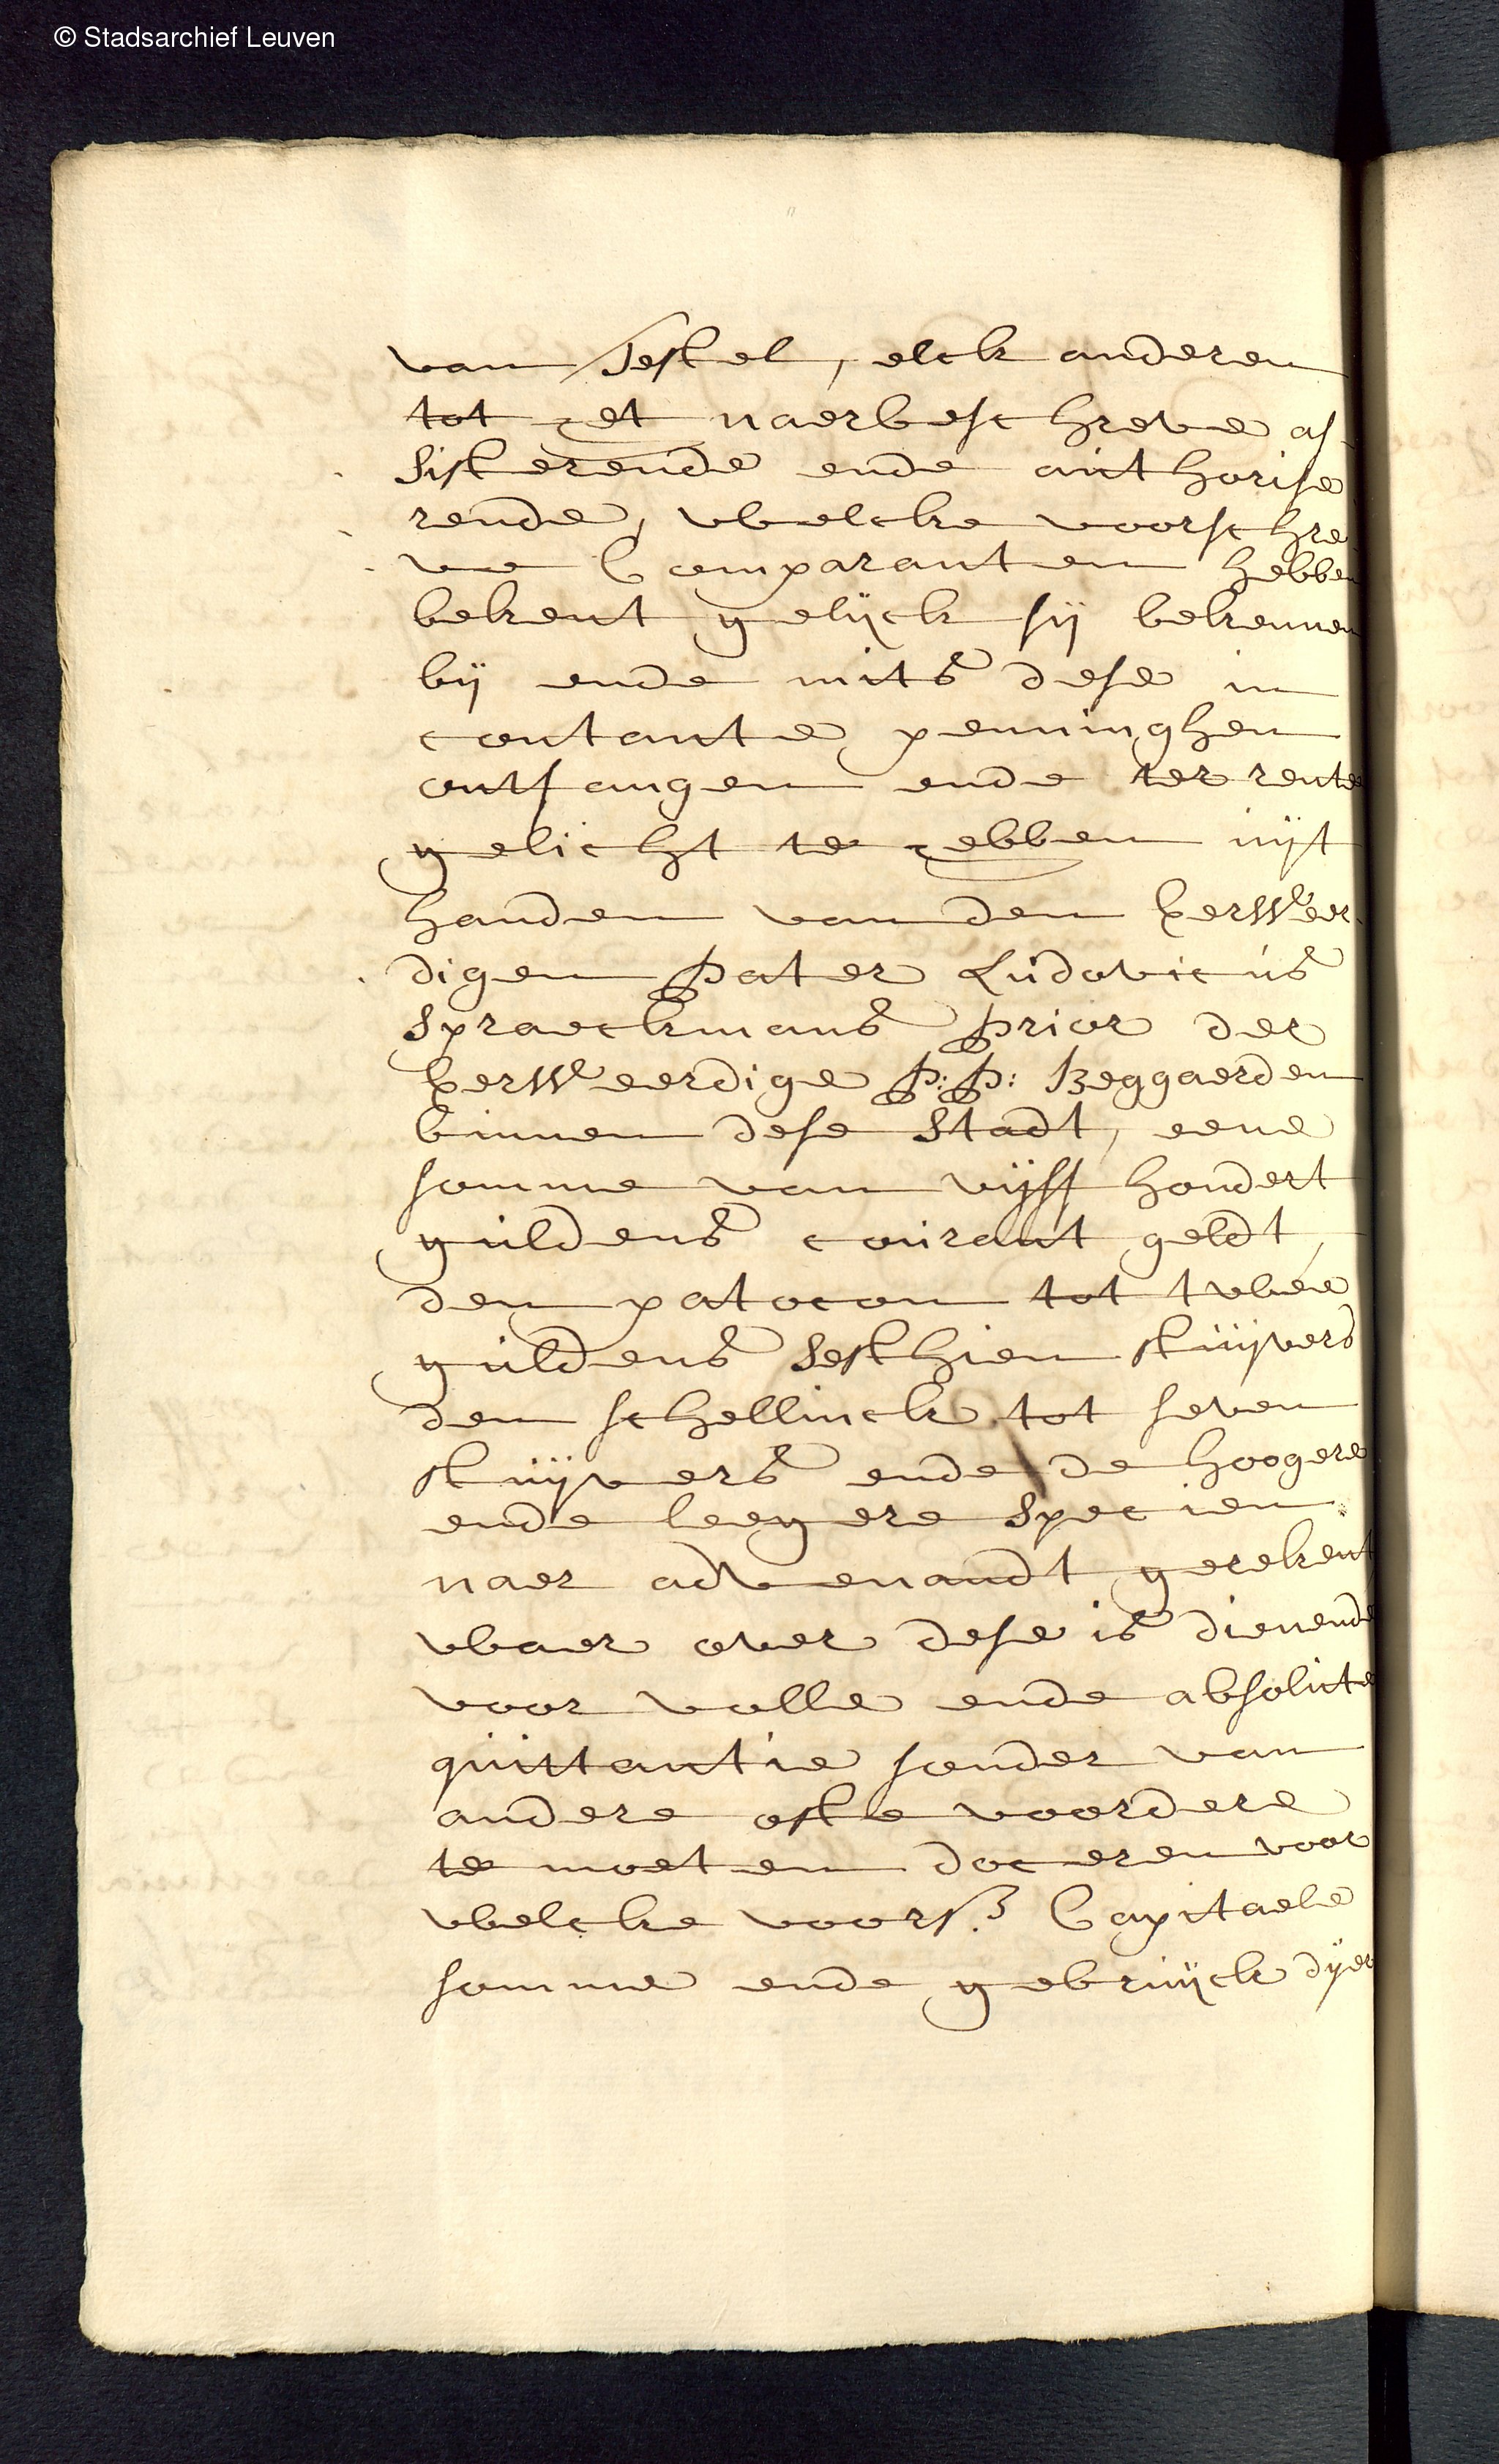 © Stadsarchief Leuven
van Testel, elck anderen
tot het naerbeschreve as-
sisterende ende authorise
rende, welcke voorschre
ve Comparanten hebben
bekent gelijck sij bekennen
bij ende mits dese in
contante penninghen
ontfangen ende ter rente
gelicht te hebben uijt
handen van den Eerweer-
digen Pater Ludovicus
Spraeckmans Prior der
Eerweerdige P:P: Beggaerden
binnen dese Stadt, eene
somme van vijff hondert
guldens courant geldt
den patocon tot twee
guldens sesthien stuijvers
den schellinck tot seven
stuijvers ende de hoogere
ende leegere specien
naer advenandt gerekent
waer over dese is dienende
voor volle ende absolute
quittantie sonder van
andere ofte voordere
te moeten doceren voor
welcke voors. Capitaele
somme ende gebruijck dijer